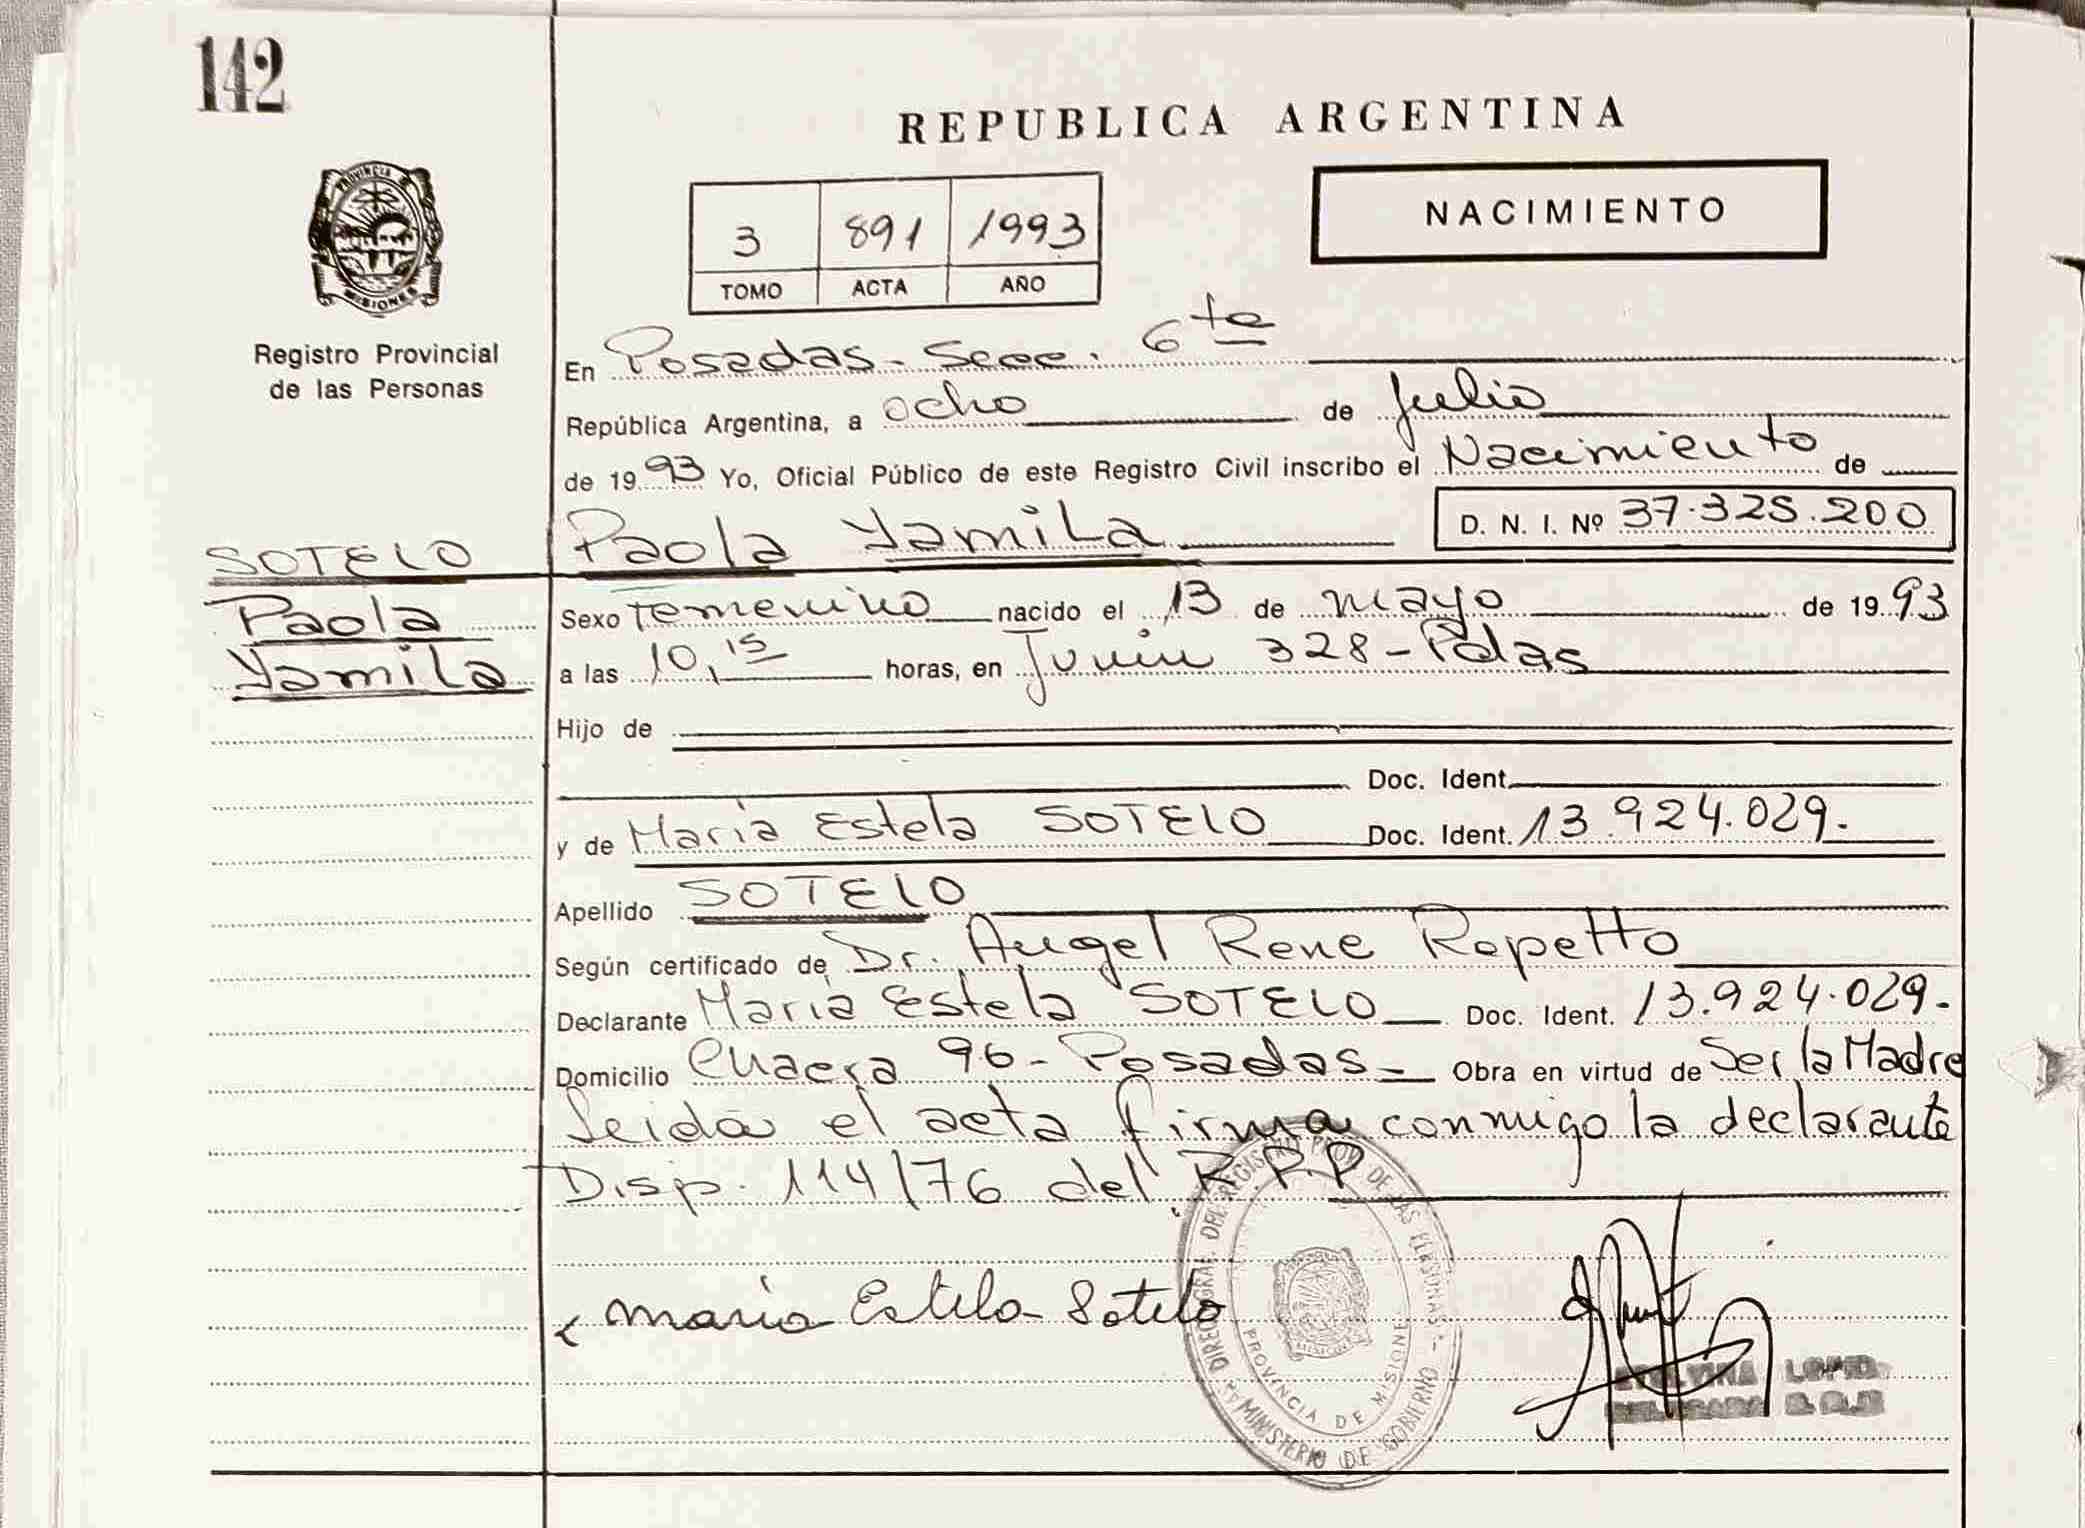 142
REPUBLICA ARGENTINA
PROVINCIA DE
MISIONES
Registro Provincial
de las Personas
3 891 1993
TOMO ACTA AÑO
NACIMIENTO
En Posadas - Secc. 6ta
República Argentina, a ocho de Julio
de 1993 Yo, Oficial Público de este Registro Civil inscribo el Nacimiento de
Paola Yamila D. N. I. Nº 37.325.200
SOTELO
Paola
Yamila
Sexo Femenino nacido el 13 de mayo de 1993
a las 10,15 horas, en Junin 328 - Pdas
Hijo de
Doc. Ident.
y de Maria Estela SOTELO Doc. Ident. 13.924.029.
Apellido SOTELO
Según certificado de Dr. Angel Rene Repetto
Declarante Maria Estela SOTELO Doc. Ident. 13.924.029-
Domicilio 96 - Posadas - Obra en virtud de Ser la Madre
Leida el acta firma conmigo la declarante
Disp. 114/76 del R.P.P
Maria Estela Sotelo
DIREC. GRAL. DEL REGISTRO PROV. DE LAS PERSONAS
MINISTERIO DE GOBIERNO
PROVINCIA DE MISIONES